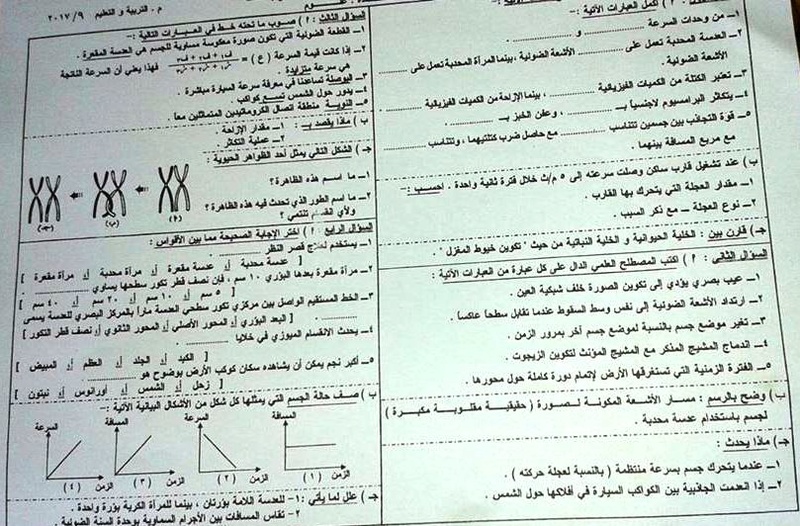 م . التربية و التعليم ٢٠١٧/٩
أكمل العبارات الآتية :ـ
١ــ من وحدات السرعة ............ و ............ .
٢ــ العدسة المحدبة تعمل على ............ الأشعة الضوئية ، بينما المرآة المحدبة تعمل على ............
الأشعة الضوئية .
٣ــ تعتبر الكتلة من الكميات الفيزيائية ............ ، بينما الإزاحة من الكميات الفيزيائية ............ .
٤ــ يتكاثر البرامسيوم لاجنسياً بـ ............ ، وعفن الخبز بـ ............ .
٥ــ قوة التجاذب بين جسمين تتناسب ............ مع حاصل ضرب كتلتيهما ، وتتناسب ............
مع مربع المسافة بينهما .
ب) عند تشغيل قارب ساكن وصلت سرعته إلى ٥ م/ث خلال فترة ثانية واحدة . احسب :ـ
١ــ مقدار العجلة التي يتحرك بها القارب .
٢ــ نوع العجلة ــ مع ذكر السبب .
جـ) قارن بين : الخلية الحيوانية و الخلية النباتية من حيث " تكوين خيوط المغزل " .
السؤال الثاني : ٢) اكتب المصطلح العلمي الدال على كل عبارة من العبارات الآتية :
١ــ عيب بصري يؤدي إلى تكوين الصورة خلف شبكية العين .
٢ــ ارتداد الأشعة الضوئية إلى نفس وسط السقوط عندما تقابل سطحاً عاكساً .
٣ــ تغير موضع جسم بالنسبة لموضع جسم آخر بمرور الزمن .
٤ــ اندماج المشيج المذكر مع المشيج المؤنث لتكوين الزيجوت .
٥ــ الفترة الزمنية التي تستغرقها الأرض لإتمام دورة كاملة حول محورها .
ب) وضح بالرسم : مسار الأشعة المكونة لصورة ( حقيقية مقلوبة مكبرة )
لجسم باستخدام عدسة محدبة .
جـ) ماذا يحدث :
١ــ عندما يتحرك جسم بسرعة منتظمة ( بالنسبة لعجلة حركته ) .
٢ــ إذا انعدمت الجاذبية بين الكواكب السيارة في أفلاكها حول الشمس .
السؤال الثالث : ٢) صوب ما تحته خط في العبارات التالية :ـ
١ــ القطعة الضوئية التي تكون صورة معكوسة مساوية للجسم هي العدسة المقعرة .
٢ــ إذا كانت قيمة السرعة ( ع ) = ف١ + ف٢ + ف٣ / ز١ + ز٢ + ز٣ فهذا يعني أن السرعة الناتجة
هي سرعة متزايدة .
٣ــ البوصلة تساعدنا في معرفة سرعة السيارة مباشرة .
٤ــ يدور حول الشمس تسع كواكب .
٥ــ النوية منطقة اتصال الكروماتيدين المتماثلين معاً .
ب ) ماذا يقصد بـ : ١ــ مقدار الإزاحة .
٢ــ عملية التكاثر .
جـ) الشكل التالي يمثل أحد الظواهر الحيوية :
١ــ ما اسم هذه الظاهرة ؟
٢ــ ما اسم الطور الذي تحدث فيه هذه الظاهرة ؟
ولأي انقسام تنتمي ؟
(أ) (ب) (جـ)
السؤال الرابع : ٢) اختر الإجابة الصحيحة مما بين الأقواس :
١ــ يستخدم لعلاج قصر النظر ............ .
[ عدسة محدبة أو عدسة مقعرة أو مرآة محدبة أو مرآة مقعرة ]
٢ــ مرآة مقعرة بعدها البؤري ١٠ سم ، فإن نصف قطر تكور سطحها يساوي ............
[ ٥ سم أو ١٠ سم أو ٢٠ سم أو ٤٠ سم ]
٣ــ الخط المستقيم الواصل بين مركزي تكور سطحي العدسة ماراً بالمركز البصري للعدسة يسمى
............ . [ البعد البؤري أو المحور الأصلي أو المحور الثانوي أو نصف قطر التكور ]
٤ــ يحدث الانقسام الميوزي في خلايا ............ .
[ الكبد أو الجلد أو العظم أو المبيض ]
٥ــ أكبر نجم يمكن أن يشاهده سكان كوكب الأرض بوضوح هو ............ .
[ زحل أو الشمس أو أورانوس أو نبتون ]
ب) صف حالة الجسم التي يمثلها كل شكل من الأشكال البيانية الآتية :ـ
مسافة الزمن ( ١ )
السرعة الزمن ( ٢ )
مسافة الزمن ( ٣ )
السرعة الزمن ( ٤ )
جـ ) علل لما يأتي : ١- للعدسة اللامة بؤرتان ، بينما للمرآة الكرية بؤرة واحدة .
٢- تقاس المسافات بين الأجرام السماوية بوحدة السنة الضوئية .